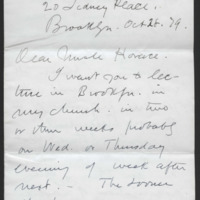 20 Sidney Place.
Brooklyn. Oct 28. 79.
Dear Uncle Horace.
I want you to lec-
ture in Brooklyn. in
my church. in two
or three weeks probably
on Wed. or Thursday
evening of week after
next. - The sooner